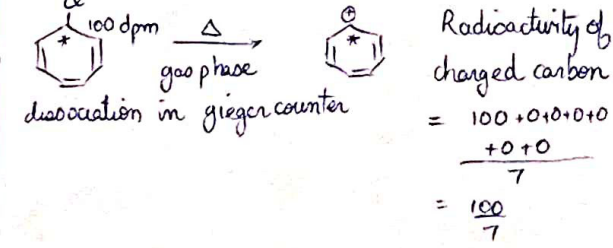 Cl
* 100 dpm
Δ
gas phase
⊕
*
dissociation in gieger counter
Radioactivity of
charged carbon
= 100 +0+0+0+0
+0+0
7
= 100
7